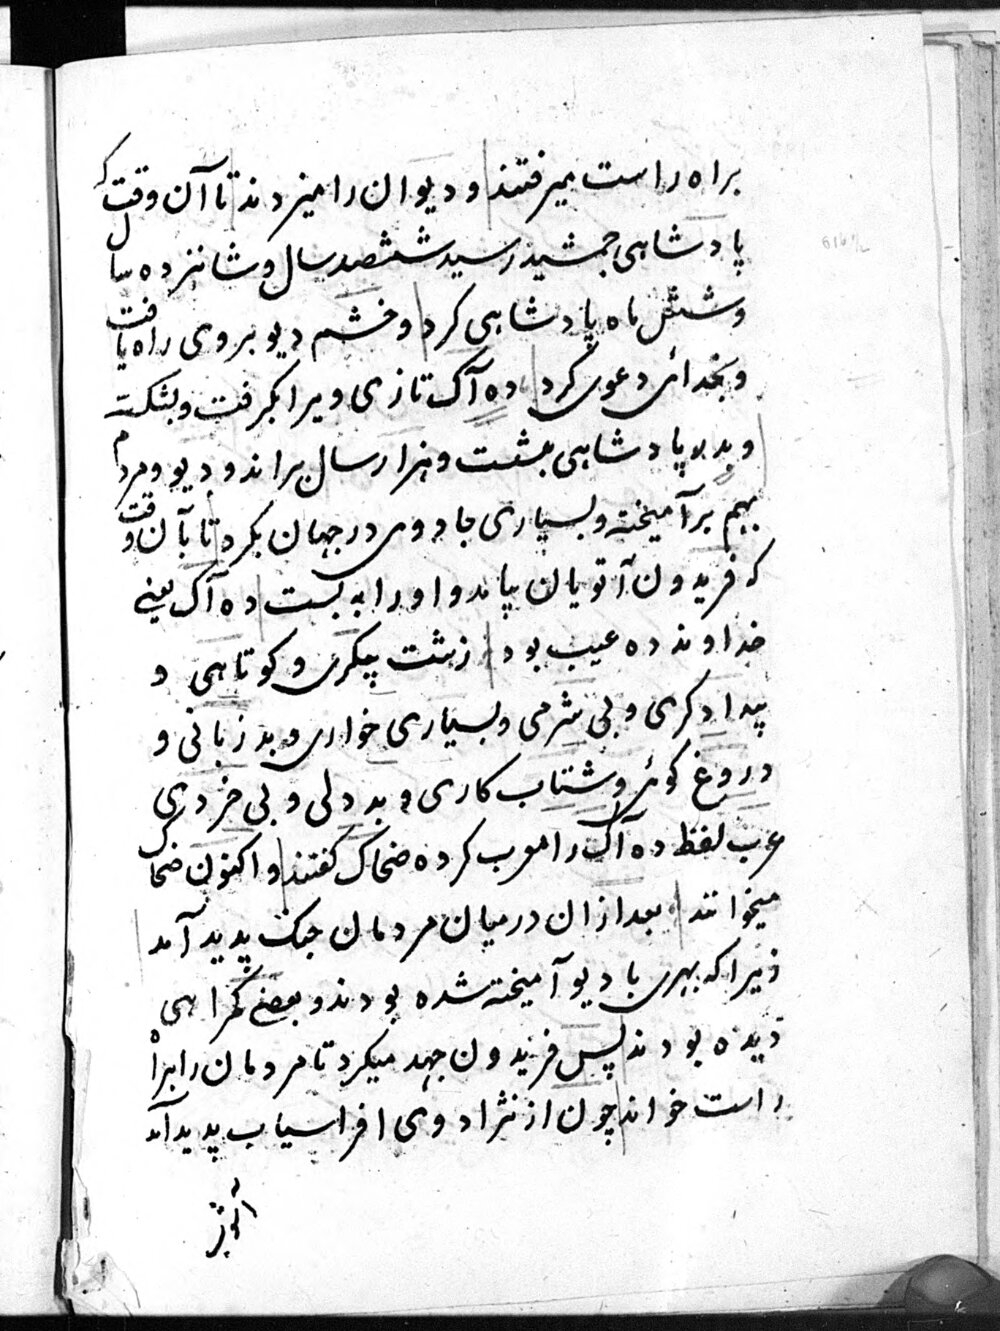 براه راست میرفتند و دیوان را میزدند تا آن وقت که
پادشاهی جمشید رسید ششصد سال و شانزده سال
و شش ماه پادشاهی کرد و خشم دیو بروی راه یافت
و بخدائی دعوی کرد ده آک تازی ویرا بگرفت و بکشت
و پادشاهی بنشست و هزار سال براند و دیو و مردم
بهم برآمیخته و بسیاری جادوی در جهان بکرد تا بآن وقت
که فریدون آتویان بیامد و او را به بست ده آک یعنی
خداوند ده عیب بود زشت پیکری و کوتاهی و
بیدادکری و بی شرمی و بسیاری خواری و بد زبانی و
دروغ کوئی و شتاب کاری و بد دلی و بی خردی
عرب لفظ ده آک را معرب کرده ضحاک گفتند و اکنون ضحاک
میخوانند بعد از آن در میان مردمان جنک پدید آمد
زیرا که بهری با دیو آمیخته شده بودند و بعضی کمراهی
دیده بودند پس فریدون جهد میکرد تا مردمان را براه
راست خواند چون از نژاد وی افراسیاب پدید آمد